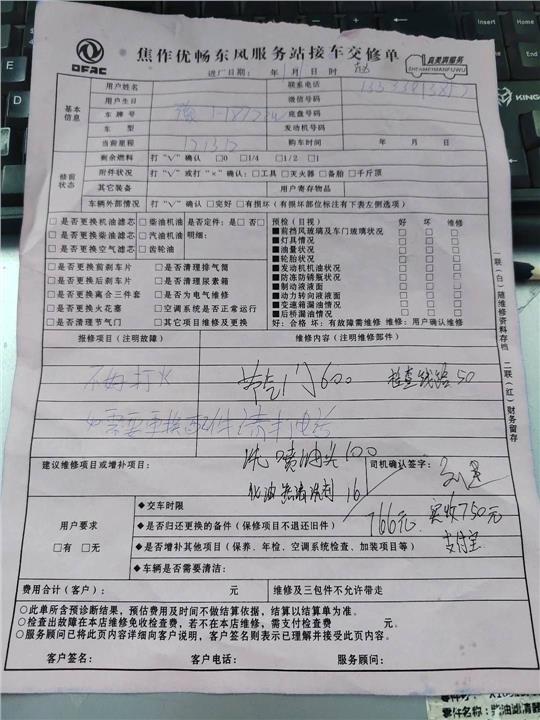 DFAC
焦作优畅东风服务站接车交修单
真美满服务
ZHENMEIMANFUWU
进厂日期: 年 月 日 时
基本信息
用户姓名 联系电话
用户生日 微信号码
车牌号 底盘号码
车型 发动机号码
当前里程 171317 购车时间 年 月 日
修前状态
剩余燃料 打“√”确认 □0 □1/4 □1/2 □1
附件状况 打“√”或打“×”确认:□工具 □灭火器 □备胎 □千斤顶
其它装备 用户寄存物品
车辆外部情况 打“√”确认 □完好 □有损坏(有损坏部位标注有下表左侧选项)
□是否更换机油滤芯 □柴油机油 □是否定件:是□ 否□
□是否更换柴油滤芯 □汽油机油 明细:
□是否更换空气滤芯 □齿轮油
□是否更换前刹车片 □是否清理排气筒
□是否更换后刹车片 □是否清理尿素箱
□是否更换离合三件套 □是否为电气维修
□是否更换火花塞 □空调系统是否正常运行
□是否清理节气门 □其它项目维修及更换
预检(目视) 好 坏 维修
■前挡风玻璃及车门玻璃状况
■灯具情况
■油量状况
■轮胎状况
■发动机机油状况
■防冻防锈瓶状况
■制动液液面
■动力转向液液面
■变速箱漏油情况
■后桥漏油情况
好:合格 坏:有故障需维修 维修:用户确认维修
一联(白)随维修资料存档 二联(红)财务留存
报修项目(注明故障) 维修内容(注明维修部件)
不好打火 节气门600 检查线路50
如需要更换配件请打电话
洗喷油头100
建议维修项目或增补项目: 司机确认签字:
化油器清洗剂 16
766元 实收750元
支付宝
用户要求
□有 □无
◆交车时限
◆是否归还更换的备件(保修项目不退还旧件)
◆是否增补其他项目(保养、年检、空调系统检查、加装项目等)
◆车辆是否需要清洁:
费用合计(客户): 元 维修及三包件不允许带走
○此单所含预诊断结果,预估费用及时间不做结算依据,结算以结算单为准。
○检查出故障在本店维修免收检查费,若不在本店维修,需支付检查费 元。
○服务顾问已将此页内容详细向客户说明,客户签名则表示已理解并接受此页内容。
客户签名: 客户电话: 服务顾问:
零件名称:柴油滤清器